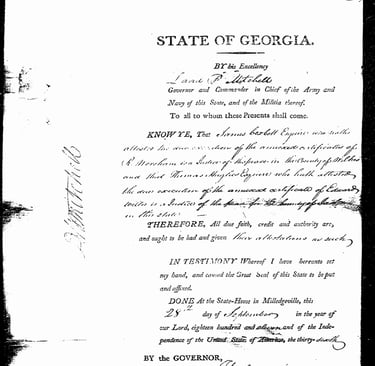 STATE OF GEORGIA.
BY his Excellency
David B Mitchell
Governor and Commander in Chief of the Army and
Navy of this State, and of the Militia thereof.
To all to whom these Presents shall come.
KNOW YE, That James Esquire who hath
attested the due execution of the annexed certificates of
R is a Justice of the peace in the County of
and that Thomas Esquire who hath attested
the due execution of the annexed certificate of Edward
is a Justice of the for the County of
in this state
THEREFORE, All due faith, credit and authority are,
and ought to be had and given their attestations as such
IN TESTIMONY Whereof I have hereunto set
my hand, and caused the Great Seal of this State to be put
and affixed.
DONE At the State-House in Milledgeville, this
28th day of September in the year of
our Lord, eighteen hundred and and of the Inde-
pendence of the United States of America, the thirty-
BY the GOVERNOR,
D B Mitchell